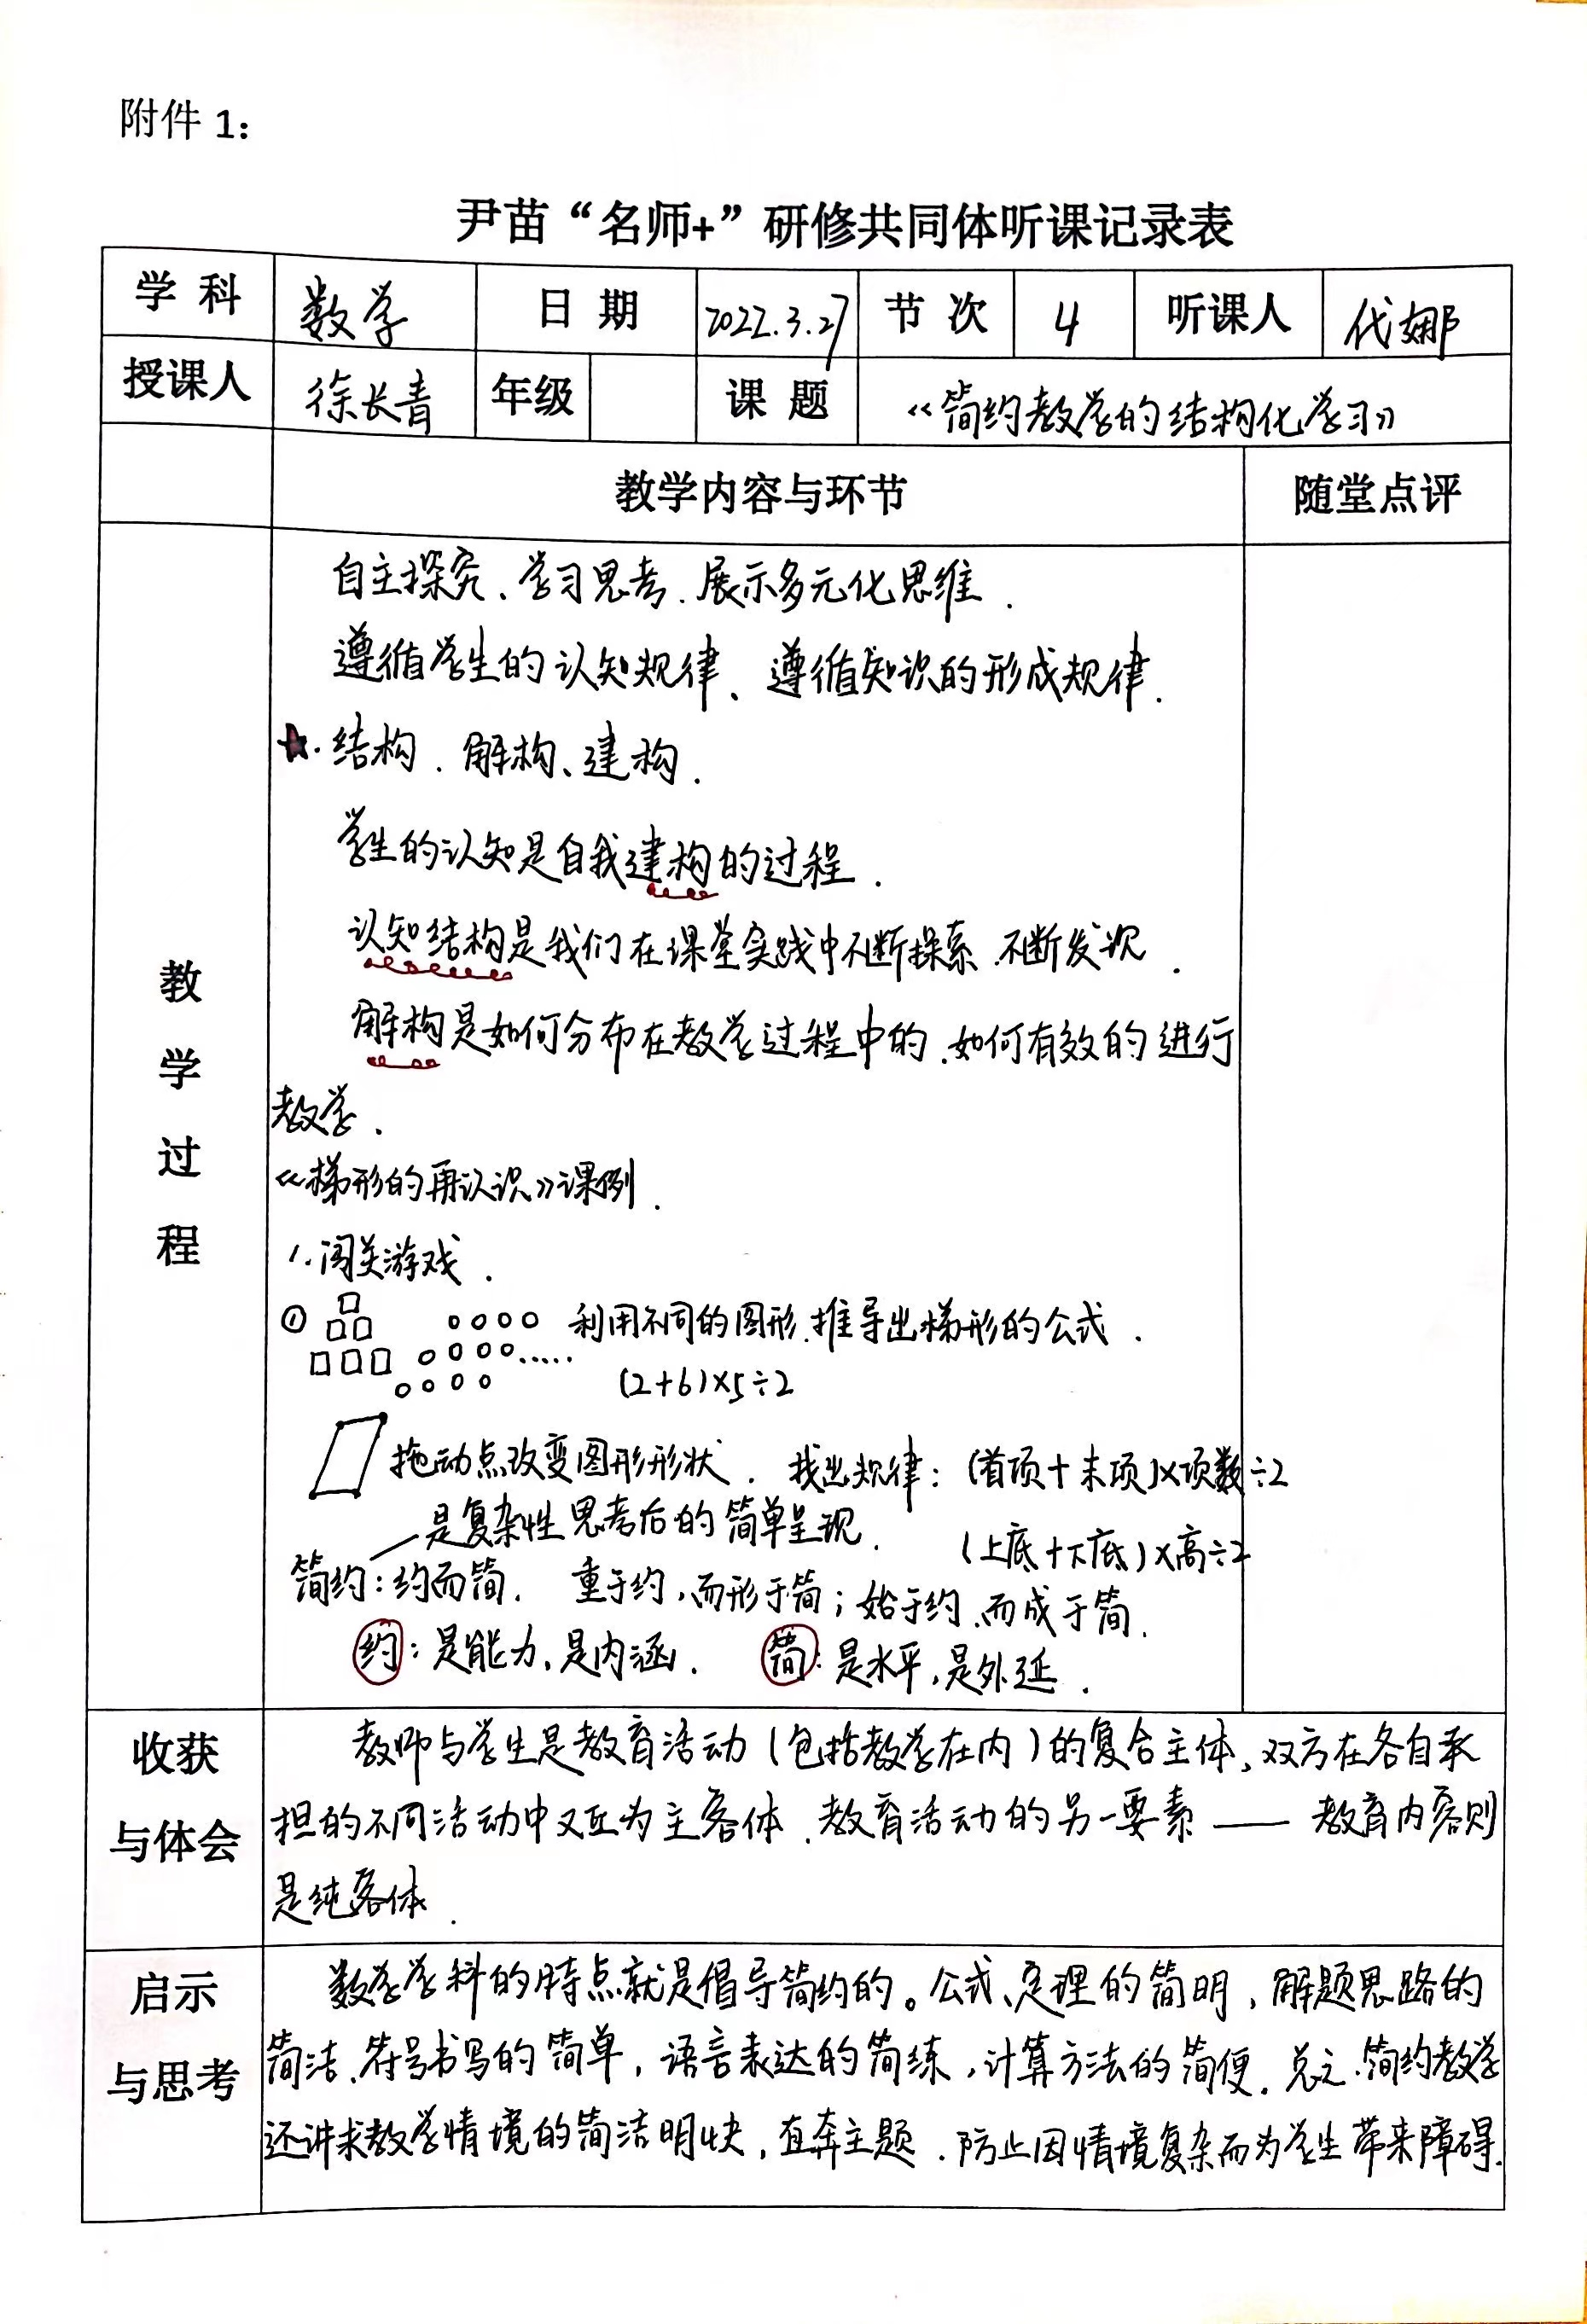 附件 1：
尹苗“名师+”研修共同体听课记录表
学 科 数学 日 期 2022.3.27 节 次 4 听课人 代娜
授课人 徐长青 年级 课 题 《简约教学的结构化学习》
教学内容与环节 随堂点评
教学过程
自主探究、学习思考、展示多元化思维.
遵循学生的认知规律、遵循知识的形成规律.
★.结构、解构、建构.
学生的认知是自我建构的过程.
认知结构是我们在课堂实践中不断探索、不断发现.
解构是如何分布在教学过程中的、如何有效的进行
教学.
《梯形的再认识》课例.
1.闯关游戏.
① 利用不同的图形、推导出梯形的公式.
(2+6)×5÷2
拖动点改变图形形状. 找出规律：(首项+末项)×项数÷2
是复杂性思考后的简单呈现. (上底+下底)×高÷2
简约：约而简. 重于约，而形于简；始于约、而成于简.
约：是能力、是内涵. 简：是水平，是外延.
收获
与体会
教师与学生是教育活动(包括教学在内)的复合主体、双方在各自承
担的不同活动中又互为主客体、教育活动的另一要素——教育内容则
是纯客体.
启示
与思考
数学学科的特点就是倡导简约的。公式、定理的简明，解题思路的
简洁、符号书写的简单，语言表达的简练，计算方法的简便.总之.简约教学
还讲求教学情境的简洁明快，直奔主题.防止因情境复杂而为学生带来障碍.